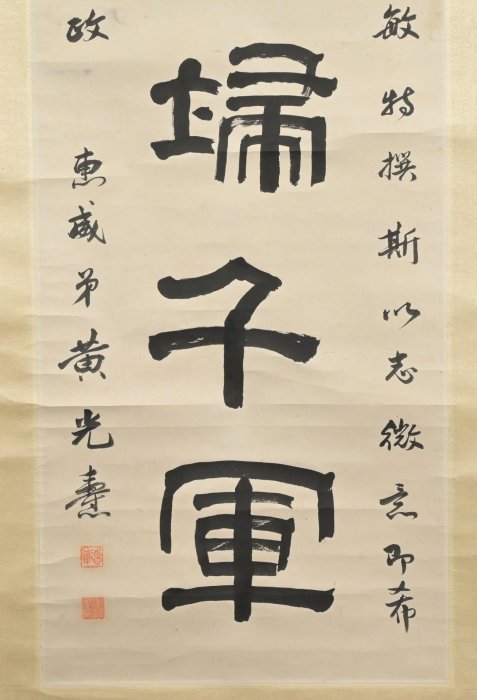 敏特撰斯以志微意即希
埽千軍
政
惠威弟黄光燾